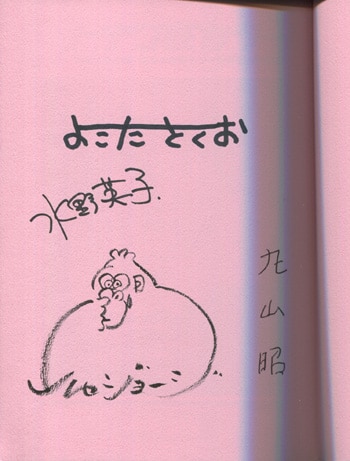 よこた とくお
水野英子.
丸山昭
ジョージ